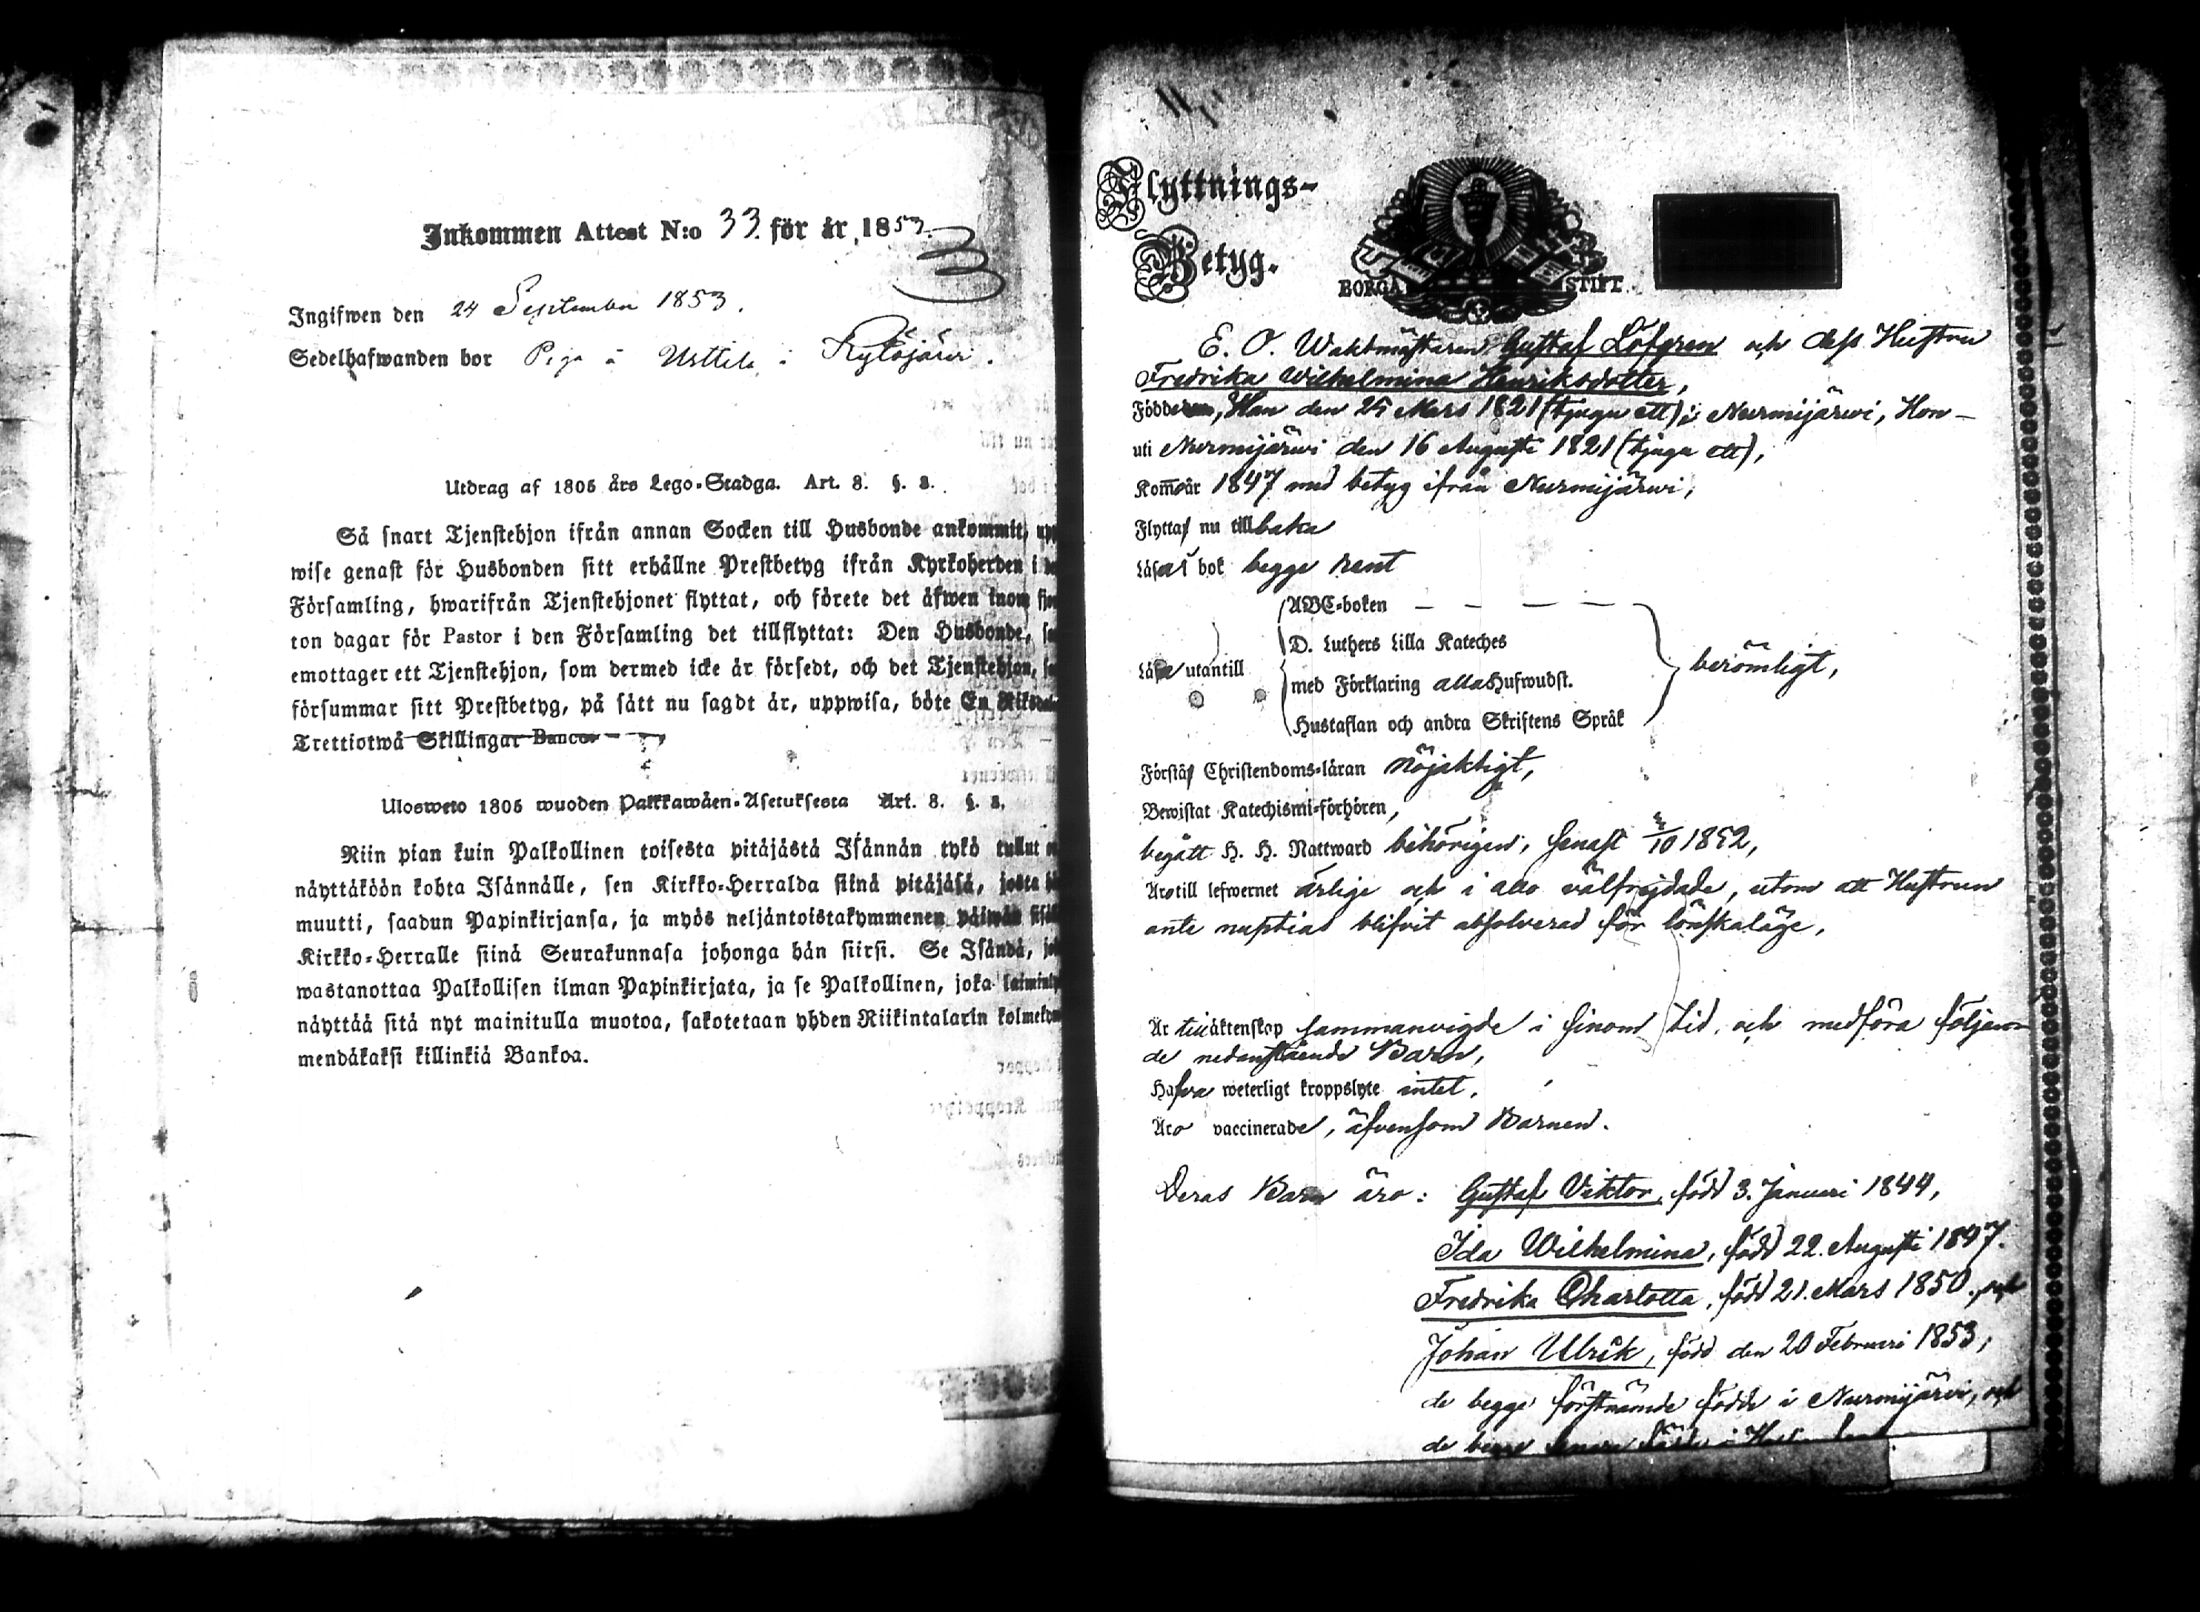 Inkommen Attest N:o 33. för år 1853.
Ingifwen den 24 September 1853.
Sedelhafwanden bor Piga i Kytöjärvi.
Utdrag af 1805 års Lego-Stadga. Art. 8. §. 3.
Så snart Tjenstehjon ifrån annan Socken till Husbonde ankommit,
wise genast för Husbonden sitt erhållne Prestbetyg ifrån Kyrkoherden i
Församling, hwarifrån Tjenstehjonet flyttat, och förete det äfwen inom
ton dagar för Pastor i den Församling det tillflyttat: Den Husbonde,
emottager ett Tjenstehjon, som dermed icke är försedt, och det Tjenstehjon,
försummar sitt Prestbetyg, på sätt nu sagdt är, uppwisa, böte En
Trettiotwå Skillingar Banco.
Ulosweto 1805 wuoden Palkkawäen-Asetuksesta Art. 8. §. 3.
Niin pian kuin Palkollinen toisesta pitäjästä Isännän tykö tullut
näyttäköön kohta Isännälle, sen Kirkko-Herralda siinä pitäjäsä, josta
muutti, saadun Papinkirjansa, ja myös neljäntoistakymmenen päiwän
Kirkko-Herralle siinä Seurakunnasa johonga hän siirsi. Se Isändä,
wastanottaa Palkollisen ilman Papinkirjata, ja se Palkollinen, joka
näyttää sitä nyt mainitulla muotoa, sakotetaan yhden Riikintalarin
mendäkaksi killinkiä Bankoa.
Flyttnings-
Betyg.
BORGÅ STIFT.
E. O. Waktmästaren Gustaf Löfgren och dess Hustru
Fredrika Wilhelmina Henriksdotter,
Födde, Han den 25 Mars 1821 (tjugu ett) i Nurmijärwi, Hon -
uti Nurmijärwi den 16 Augusti 1821 (tjugu ett),
Kom år 1847 med betyg ifrån Nurmijärwi,
Flytta nu tillbaka
Läsa i bok begge rent
Läsa utantill
ABC-boken - - - -
D. Luthers Lilla Kateches
med Förklaring alla Hufwudst.
Hustaflan och andra Skriftens Språk
berömligt,
Förstå Christendoms-läran nöjaktigt,
Bewistat Katechismi-förhören,
begått H. H. Nattward behörigen, senast /10 1852,
Äro till lefwernet ärlige och i allo välfrejdade, utom att Hustrun
ante nuptias blifvit absolverad för lönskaläge,
Är till äktenskap sammanvigde i sinom tid, och medföra följan-
de nedanstående Barn,
Hafva weterligt kroppslyte intet,
Äro vaccinerade, äfvensom Barnen.
Deras Barn äro: Gustaf Viktor, född 3. Januari 1844,
Ida Wilhelmina, född 22. Augusti 1847.
Fredrika Charlotta, född 21. Mars 1850, och
Johan Ulrik, född den 20 Februari 1853;
de begge förstnämde födde i Nurmijärvi, och
de begge senare födde i